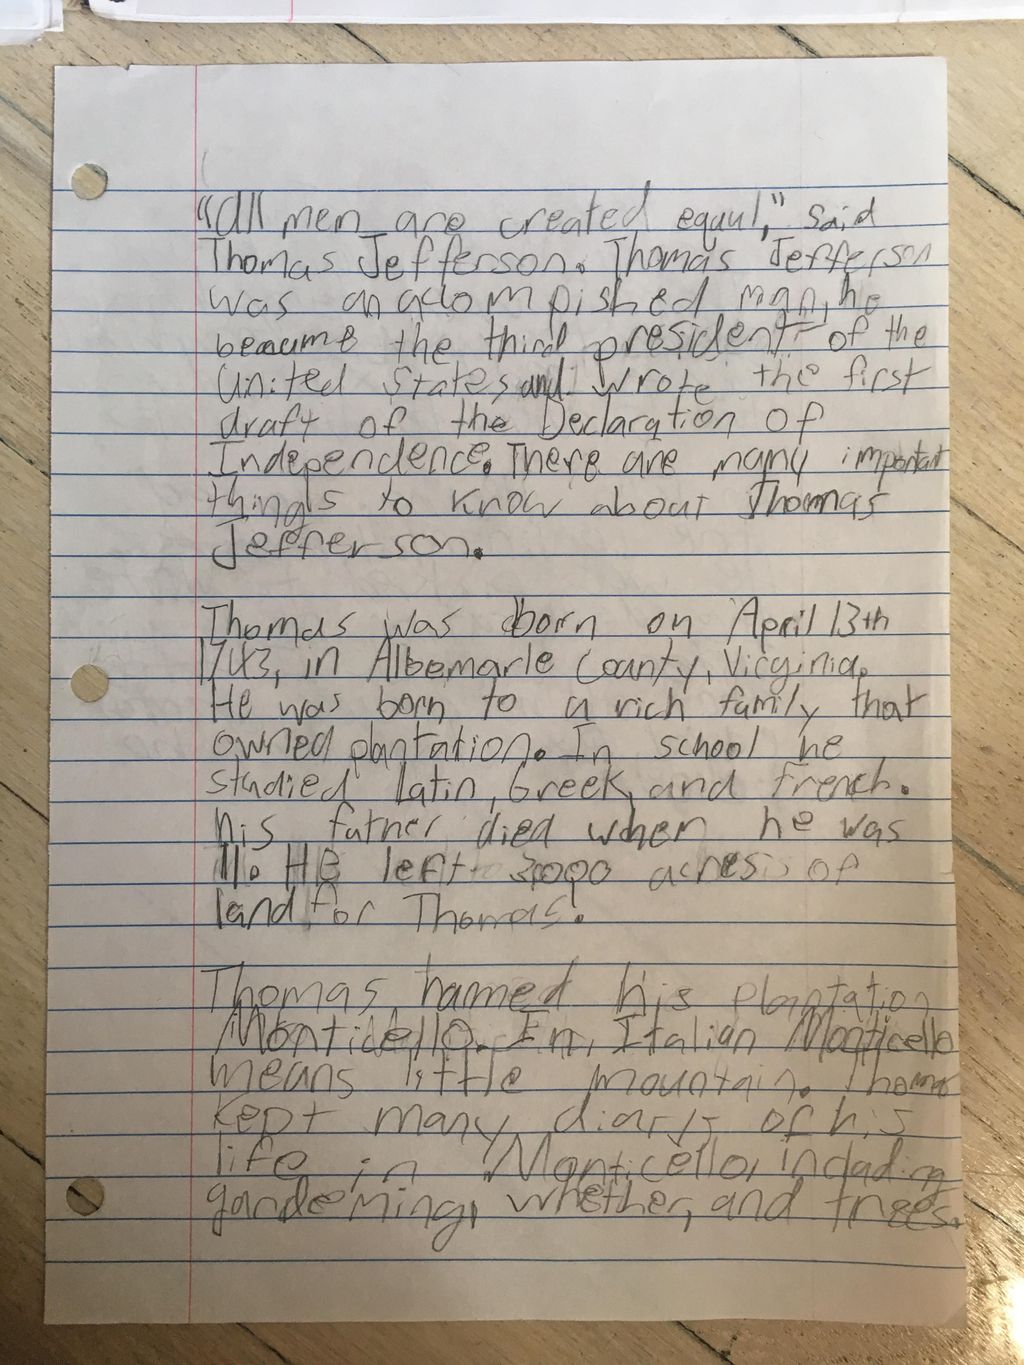 "All men are created equul," said
Thomas Jefferson. Thomas Jefferson
was an adompished man, he
becaume the third president of the
United States and wrote the first
draft of the Declaration of
Independence. There are many important
things to know about Thomas
Jefferson.
Thomas was born on April 13th
1743, in Albemarle County, Virginia.
He was born to a rich family that
owned plantation. In school he
studied latin, Greek, and French.
his father died when he was
11. HE left 3,000 acres of
land for Thomas.
Thomas named his plantation
Monticello. In, Italian Monticello
means little mountain. Thomas
kept many diarys of his
life in Monticello, including
gardening, whether, and trees.